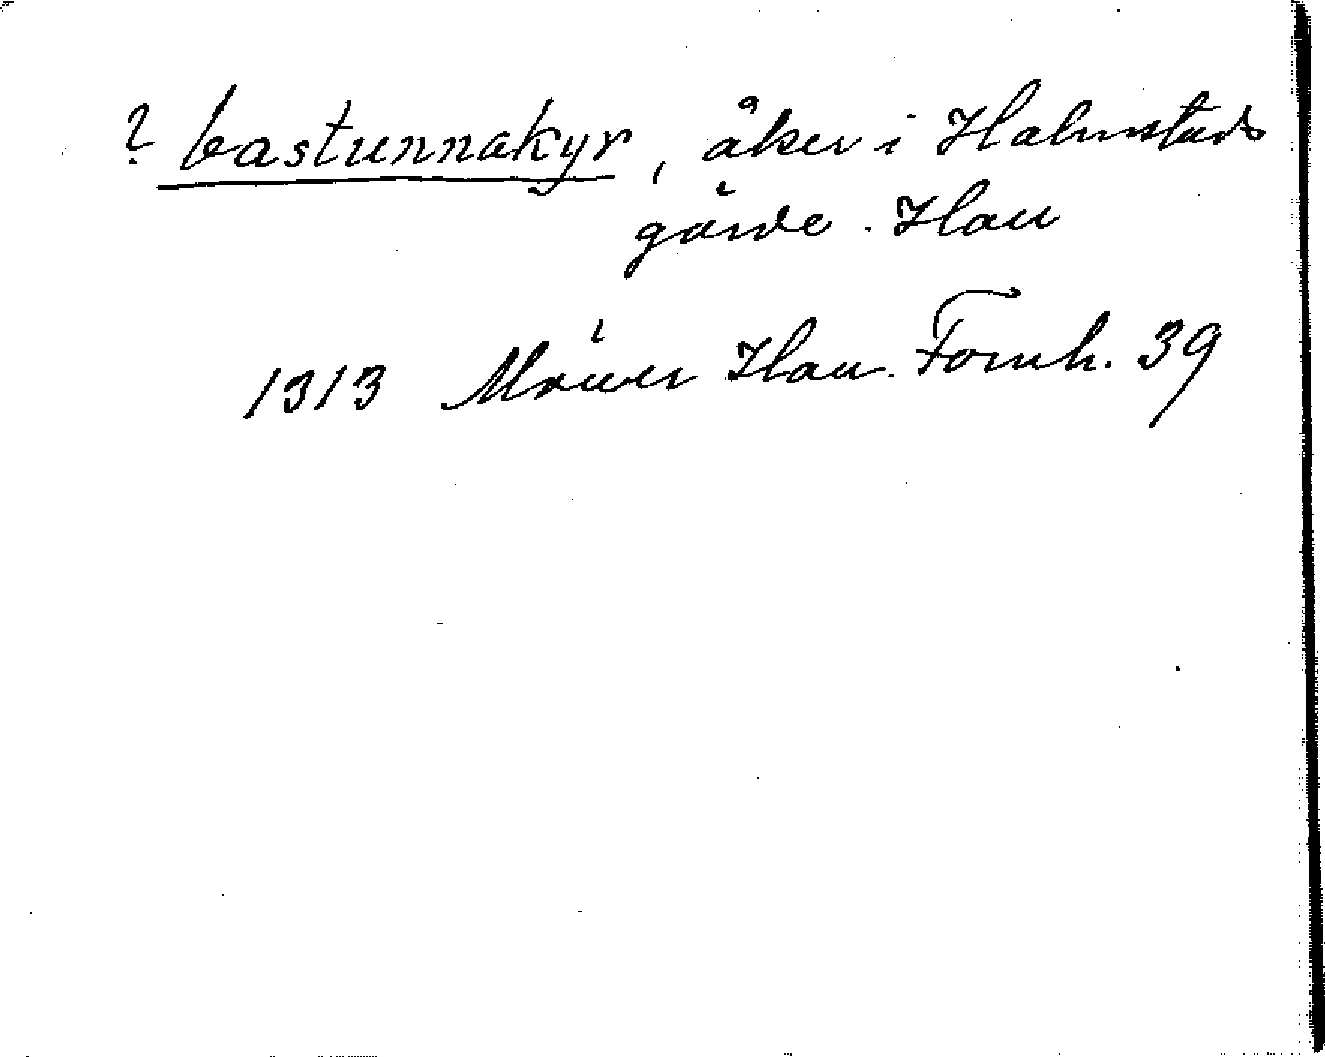 ? bastunnakyr, åker i Halmstads
gärde. Hall
1313 Möller Hall. Fornh. 39